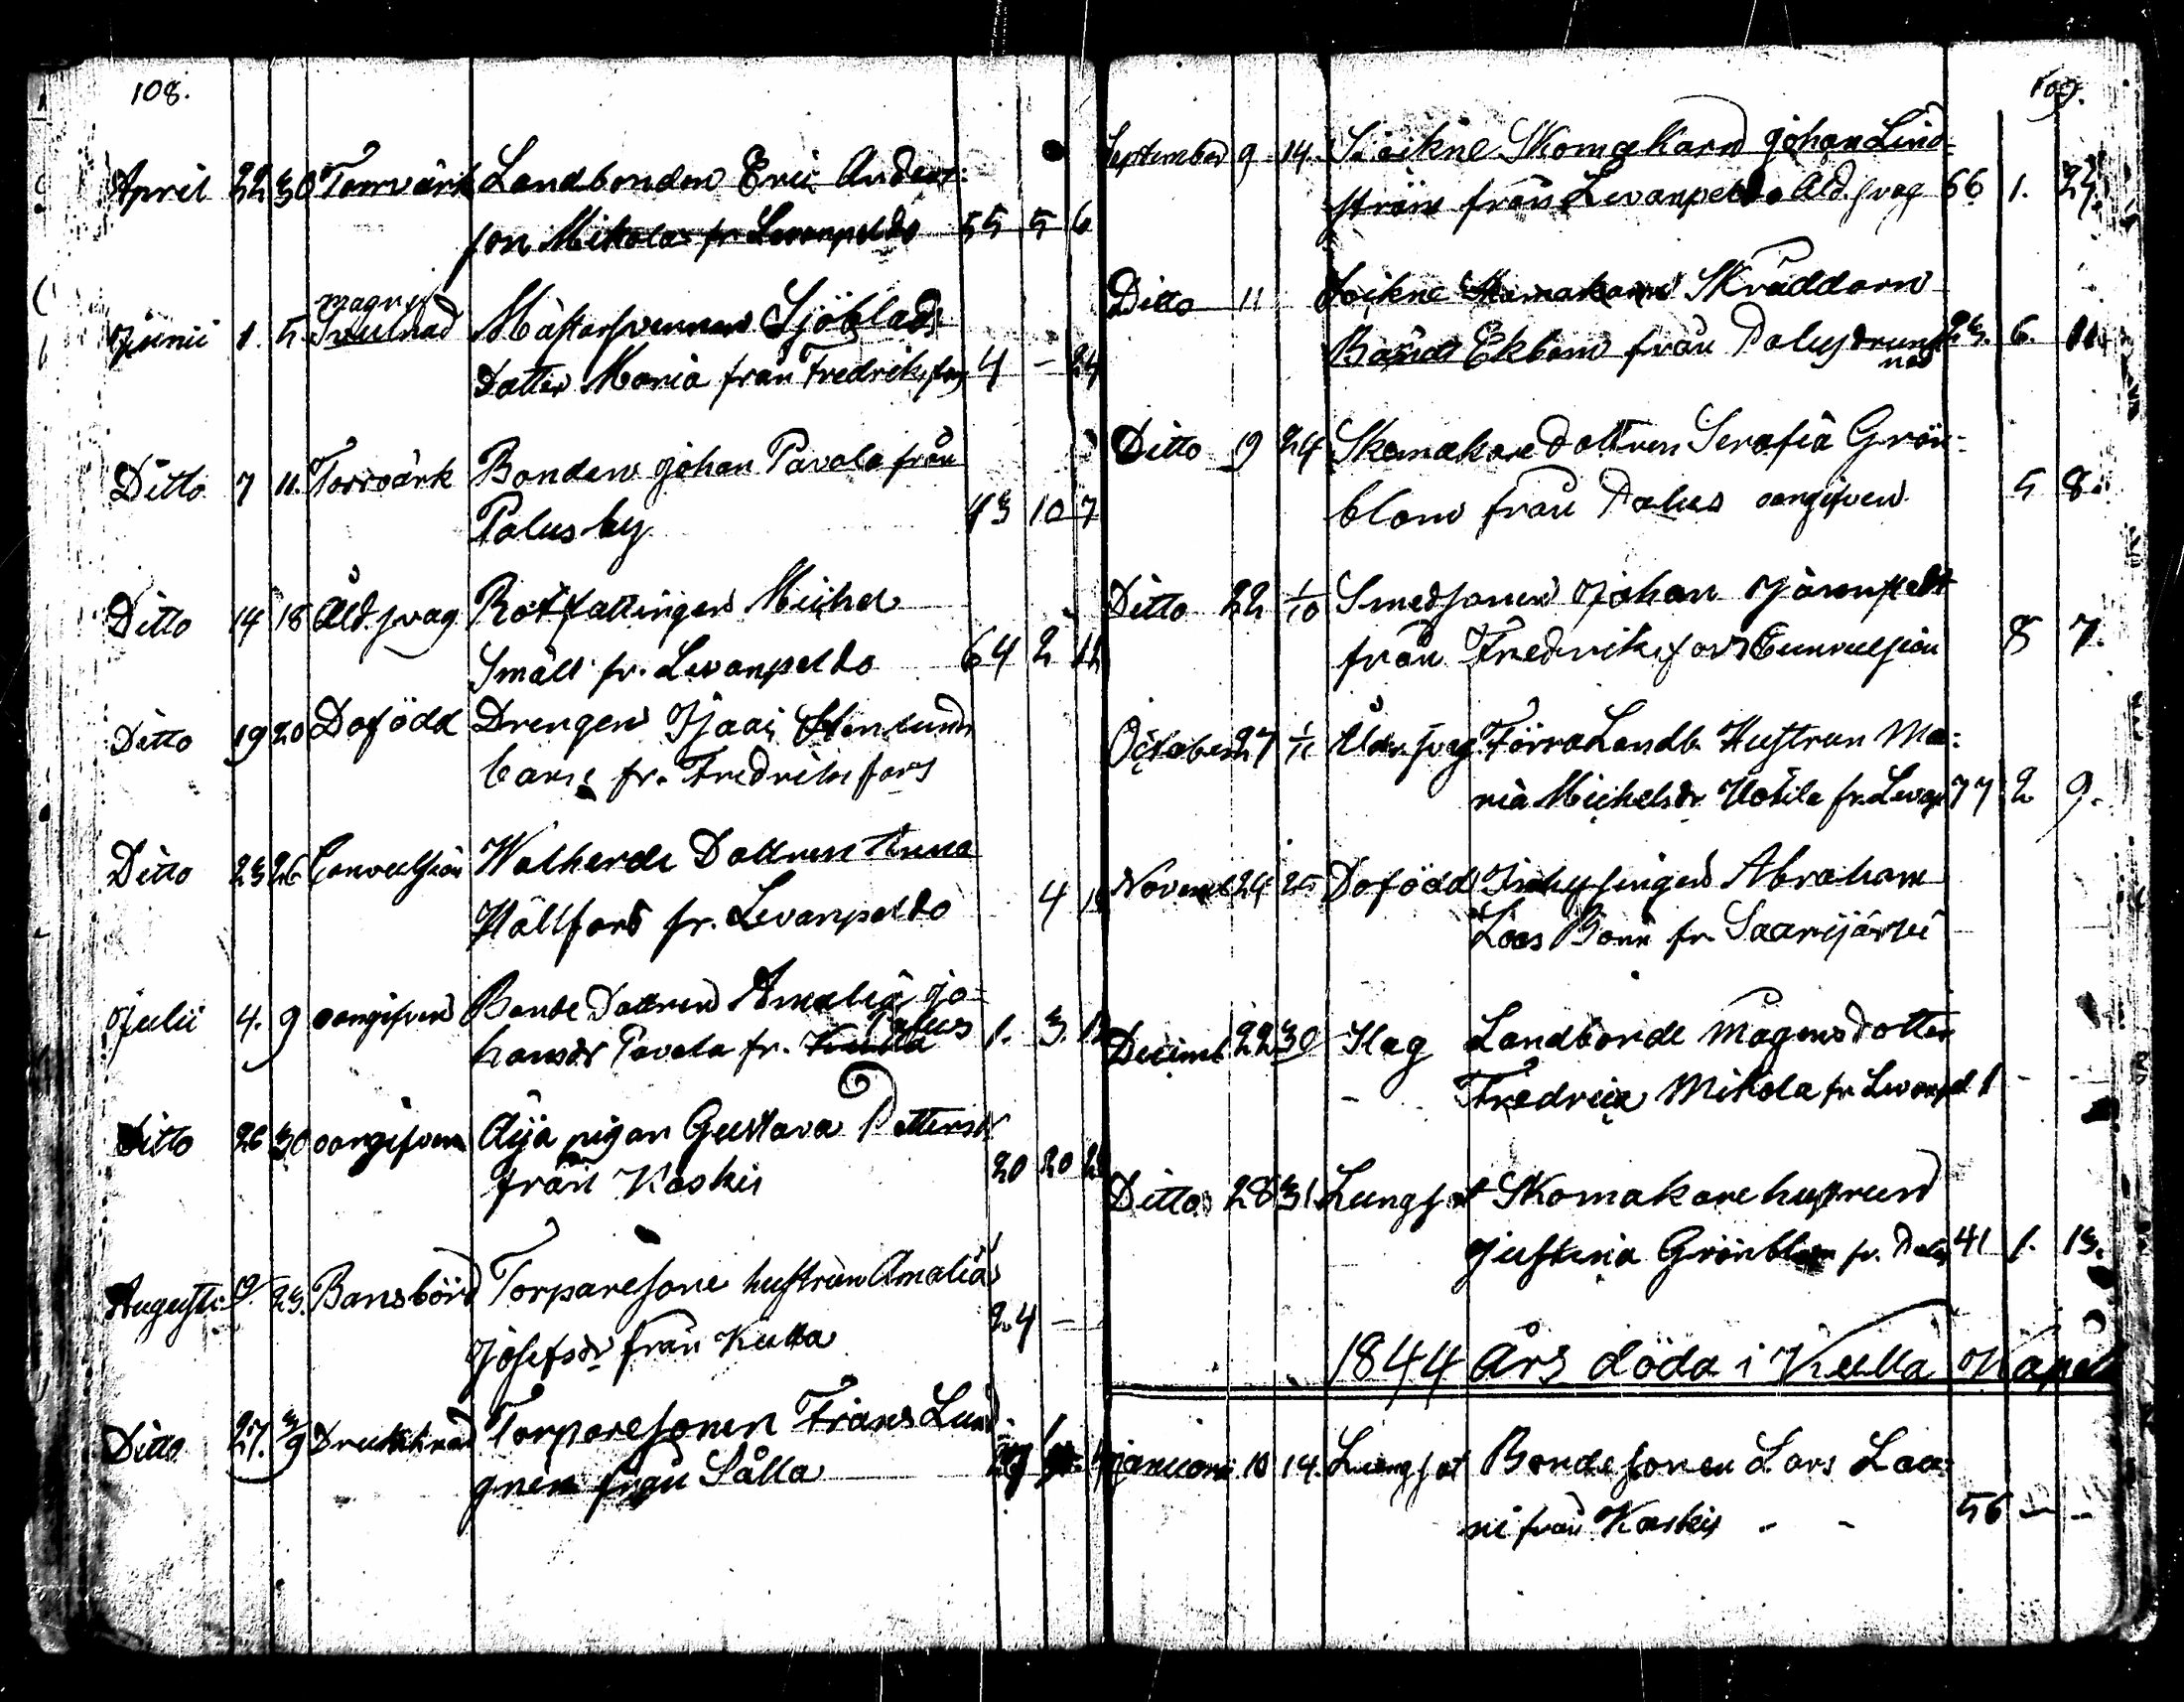 108.
April 22 30 Torrvärk Landbonden Eric Anders:
son Mikola fr Levanpeldo 55 5 6
magref
Junii 1. 5. Svulnad Mästersvennen Sjöblads
Dotter Maria från Fredriksfors 4 - 24
Ditto 7 11. Torrvärk Bonden Johan Pavola från
Palus by 43 10 7
Ditto 14 18 Åld. svag Rotfattingen Michel
Smäll fr. Levanpeldo 64 2
Ditto 19 20 Dofödd Drengen Isaac Stenlunds
barn fr. Fredriksfors
Ditto 23 26 Convulsion Dottren Anna
Hällfors fr. Levanpeldo 4
Julii 4. 9 oangifven Bonde Dottren Amalia Jo-
hansdr Pavola fr. Palus 1. 3.
Ditto 26 30 oangifven pigan Gustava Pettersdr
från Kaskis 20 20
Augusti 19. 23. Barnsbörd Torparesone hustrun Amalia
Josefsdr från Kulla 24 -
Ditto 27. 3/9 Drunknad Torparesonen Frans Lund
gren från Sålla
109.
September 9 14. Sockne Skomakarn Johan Lind-
ström från Levanpeldo Åld. svag 66 1.
Ditto 11 Sockne Skomakarn Skräddarn
Ekbom från Palus drunk 23. 6. 11.
nad
Ditto 19 24 Skomakare dottren Serafia Grön-
blom från Palus oangifven 5 8.
Ditto 22 1/10 Smedsonen Johan
från Fredriksfors Convulsion 8 7.
October 27 1/11 Ålder. svag Förra Landb. Hustrun Ma:
ria Michelsdr Uotila fr. Levanp 77 2 9.
Novemb 24 25 Dofödd Inhysingen Abraham
Barn fr Saarijärvi
Decemb 22 30 Slag Landbonde Mågens dotter
Fredrica Mikola fr Levanpel 1 - -
Ditto 28 31 Lungsot Skomakare hustrun
Justina Grönblom fr. Palus 41 1. 13.
1844 Års döda i Kulla Kapell
Januari 10 14. Lungsot Bondesonen Lars Laa:
ni från Kaskis - - 56 - -